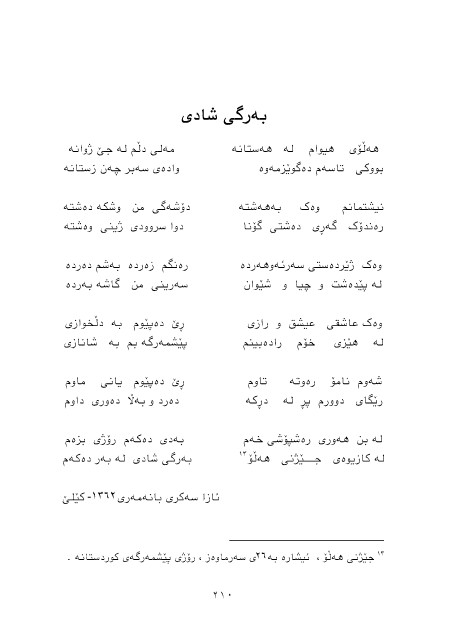 بەرگی شادی
هەڵۆی هیوام لە هەستانە مەلی دڵم لە جێ ژوانە
بووکی تاسەم دەگوێزمەوە وادەی سەبر چەن زستانە
نیشتمانم وەک بەهەشتە دۆشەگی من وشکە دەشتە
رەندۆک گەڕی دەشتی گۆنا دوا سروودی ژینی وەشتە
وەک ژێردەستی سەرئەوهەردە رەنگم زەردە بەشم دەردە
لە پێدەشت و چیا و شێوان سەرینی من گاشە بەردە
وەک عاشقی عیشق و رازی رێ دەپێوم بە دڵخوازی
لە هێزی خۆم رادەبینم پێشمەرگە بم بە شانازی
شەوم نامۆ رەوتە تاوم رێ دەپێوم یانی ماوم
رێگای دوورم پڕ لە دڕکە دەرد و بەڵا دەوری داوم
لە بن هەوری رەشپۆشی خەم بەدی دەکەم رۆژی بزەم
لە کازیوەی جـــێژنی هەڵۆ١٣ بەرگی شادی لە بەر دەکەم
ئازا سەکری بانەمەری ١٣٦٢- کێلێ
١٣ جێژنی هەڵۆ ، ئیشارە بە ٢٦ی سەرماوەز ، رۆژی پێشمەرگەی کوردستانە .
٢١٠